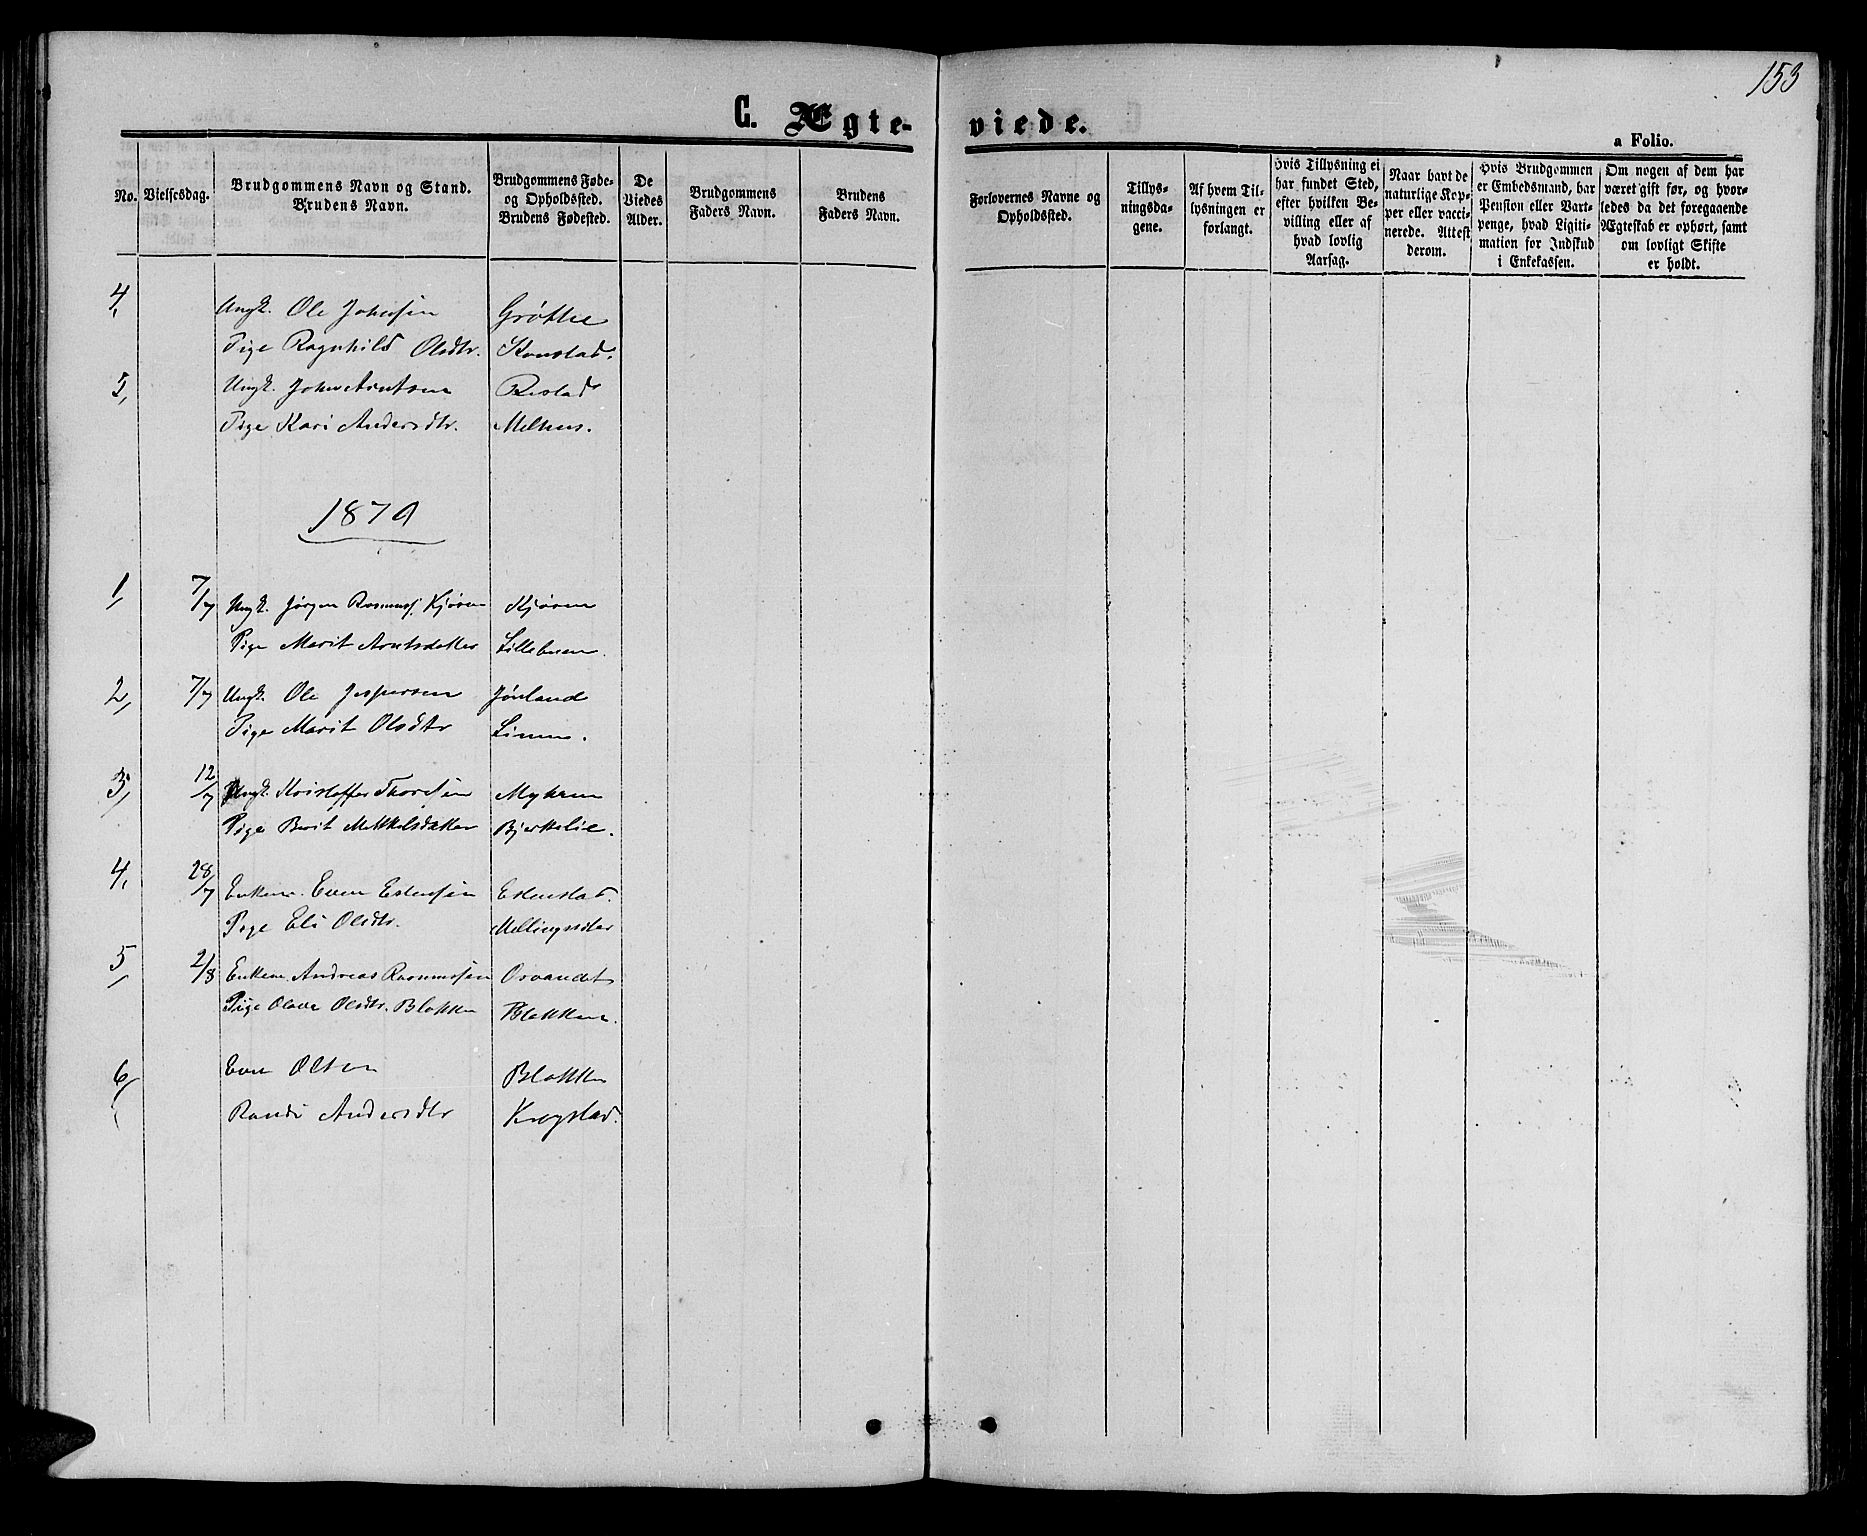 153
C. Ægteviede.
a Folio.
No.
Vielsesdag.
Brudgommens Navn og Stand.
Brudens Navn.
Brudgommens Føde-
og Opholdssted.
Brudens Fødested.
De
Viedes
Alder.
Brudgommens
Faders Navn.
Brudens
Faders Navn.
Forlovernes Navne og
Opholdssted.
Tillys-
ningsda-
gene.
Af hvem Til-
lysningen er
forlangt.
Hvis Tillysning ei
har fundet Sted,
efter hvilken Be-
villing eller af
hvad lovlig
Aarsag.
Naar havt de
naturlige Kop-
per eller vacci-
nerede. Attest
derom.
Hvis Brudgommen
er Embedsmand, har
Pension eller Vart-
penge, hvad Ligiti-
mation for Indskud
i Enkekassen.
Om nogen af dem har
været gift før, og hvor-
ledes da det foregaaende
Ægteskab er ophørt, samt
om lovligt Skifte
er holdt.
4, Ungk. Ole Johnsen Grøtte
Pige Ragnhild Olsdtr. Konstad.
5, Ungk. John Arntsen Restad
Pige Kari Andersdtr. Melhus.
1879
1, 7/7 Ungk. Jørgen Rasmuss. Kjøren Kjøren
Pige Marit Arntsdatter Lillebuen.
2, 7/7 Ungk. Ole Jespersen Jønland
Pige Marit Olsdtr Linum.
3, 12/7 Ungk. Kristoffer Thoresen Myhren
Pige Berit Mikkelsdatter Bjerkelie.
4, 28/7 Enkem. Even Estensen Estenstad.
Pige Eli Olsdtr.
5, 2/8 Enkem. Andreas Rasmussen Osvandet
Pige Olava Olsdtr. Blokken Blokken.
6, Even Olsen Blokken
Randi Andersdtr Krogstad.